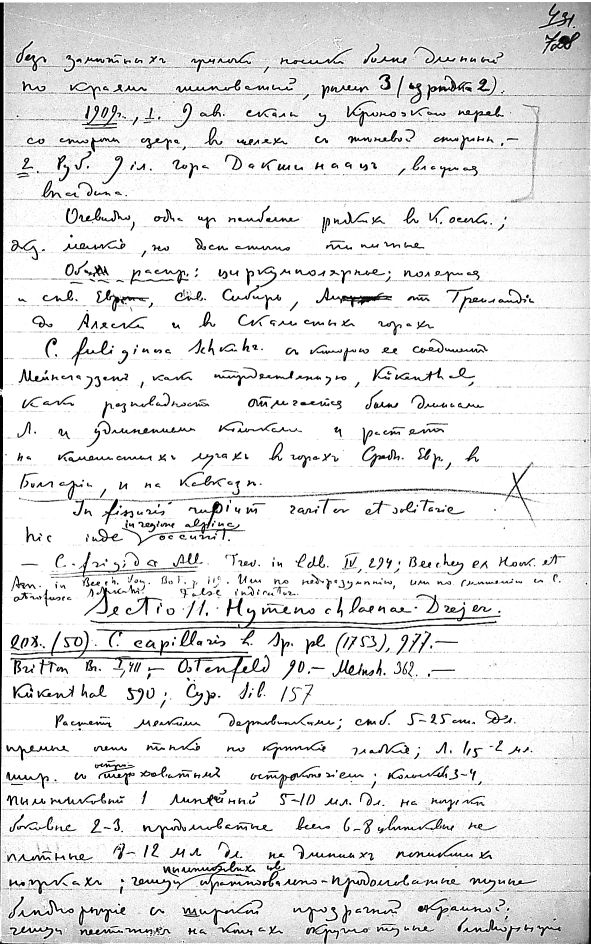 431.
728
безъ замѣтныхъ , носикъ болѣе длинный
по краямъ шиповатый, рылецъ 3 (изрѣдка 2).
1909г., 1. 9 ав. скалы у Кроноцкаго перев.
со стороны озера, въ щеляхъ съ тѣневой стороны. –
2. Руб. 9 іл. гора Дакшинаацъ, влажная
впадина.
Очевидно, одна изъ наиболѣе рѣдкихъ въ К. осокъ;
экз. мелкіе, но достаточно типичные
Общ. распр.: циркумполярное; полярная
и сѣв. Евр., сѣв. Сибирь, от Гренландіи
до Аляски и въ Скалистыхъ горахъ
C. fuliginosa Schkuhr. съ которою ее соединяетъ
Мейнсгаузенъ, какъ тождественную, Kükenthal,
какъ разновидность отличается болѣе длинными
Л. и удлиненными колосками и растетъ
на каменистыхъ лугахъ въ горахъ Средн. Евр., въ
Болгаріи, и на Кавказѣ.
In fissuris rupium raritor et solitarie
hic inde in regione alpina occurrit.
– C. frigida All. Trev. in Ldb. IV, 294; Beechey ex Hook. et
Arn. in Beech. Voy. Bot. p 119. Или по недоразумѣнію, или по смѣшенію съ C.
atrofusca Schkuhr. False indicator.
Sectio 11. Hymenochlaenae Drejer.
208. (50). C. capillaris L. Sp. pl. (1753), 977. –
Britton Br. I, 411, – Ostenfeld 90. – Meinsh. 362. –
Kükenthal 590; Cyp. Sib. 157
Растетъ мелкими дерновинками; стб. 5-25 cm. дл.
прямые очень тонкіе по кр. гладкіе; Л. 1,5-2 мл.
шир. съ остро шерховатымъ остроконечіемъ; колоски 3-4,
пыльниковый 1 линейный 5-10 мл. дл. на ножкѣ
боковые 2-3. продолговатые всего 6-8 цвѣтковые не
плотные 8-12 мл дл. на длинныхъ поникшихъ
ножкахъ; чешуи пыльниковыхъ цв. обратноовально-продолговатые тупые
блѣднорыжіе съ широкой прозрачной окраиной;
чешуи пестичныхъ на концахъ округло тупые блѣднорыжіе